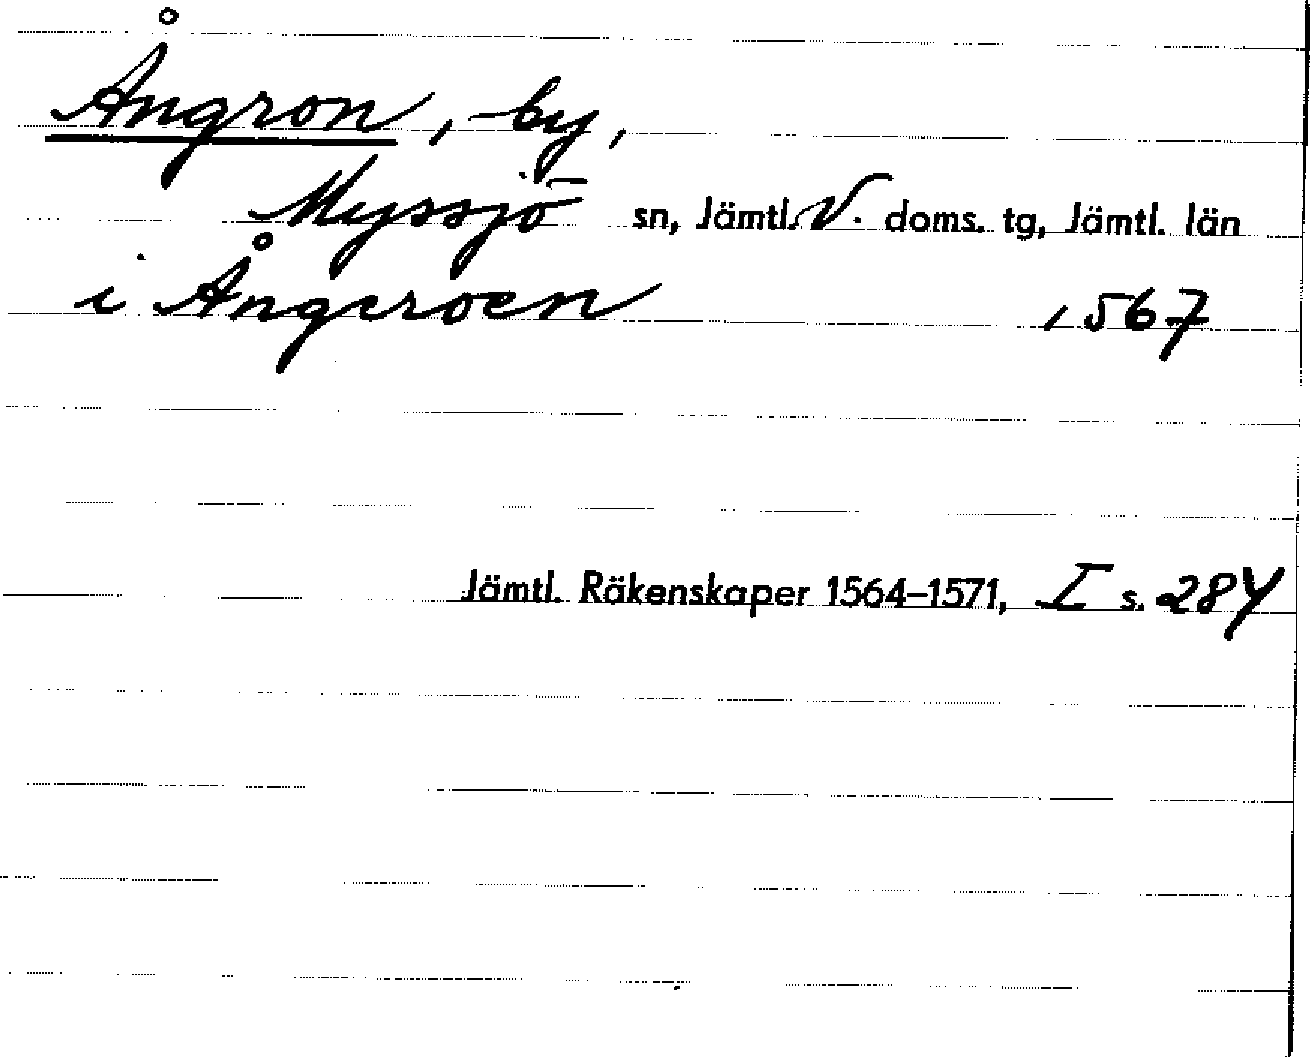 Ångron, by,
Myssjö sn, Jämtl. V. doms. tg, Jämtl. län
i Ångeroen 1567
Jämtl. Räkenskaper 1564–1571, I s. 284